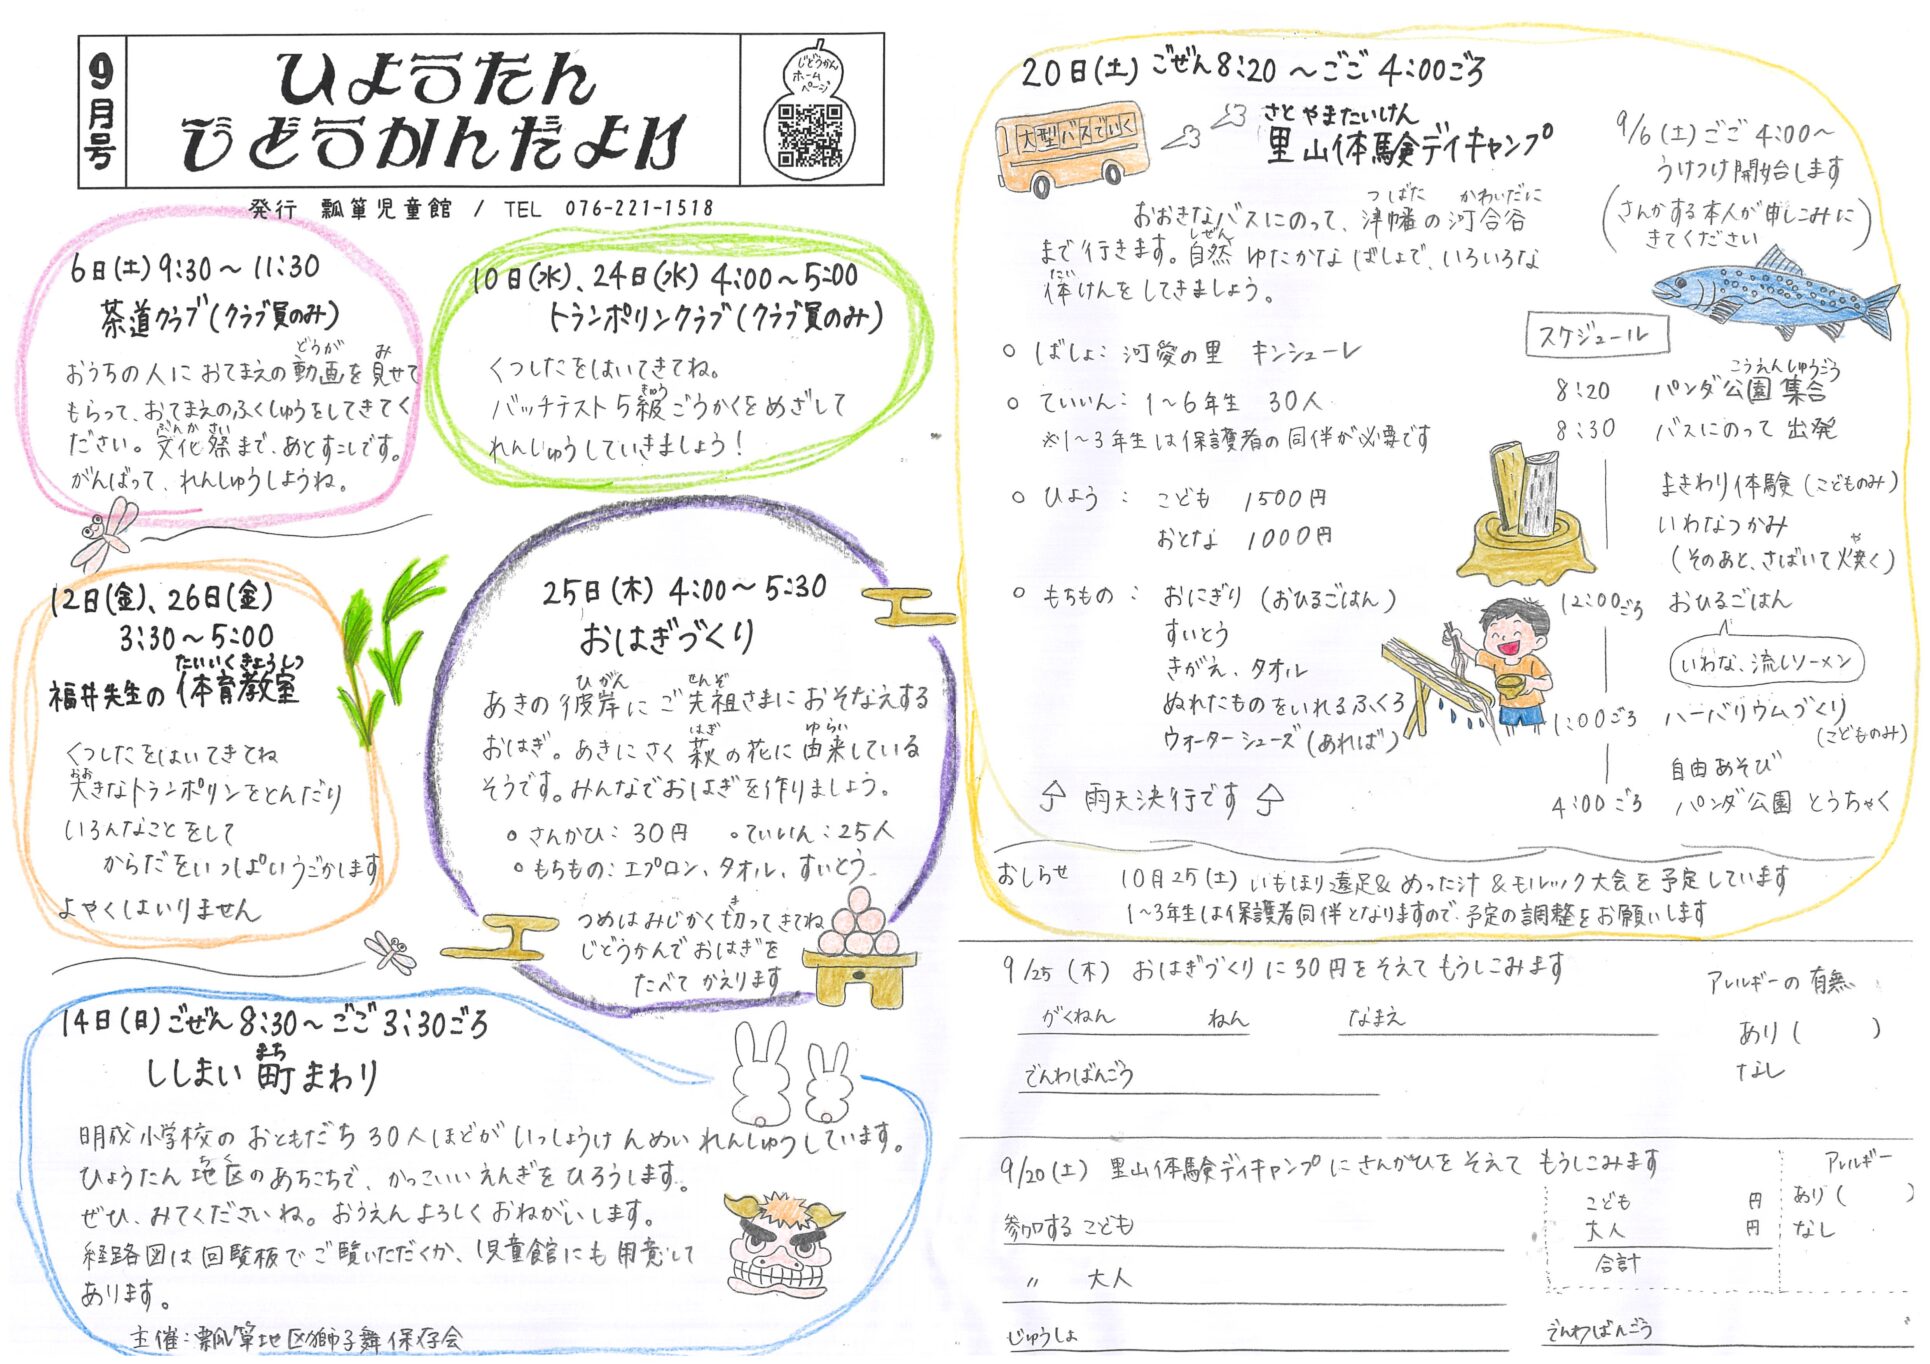 9月号
ひょうたん
じどうかんだより
じどうかん
ホーム
ページ
発行 瓢箪児童館 / TEL 076-221-1518
6日(土) 9:30～11:30
茶道クラブ(クラブ員のみ)
おうちの人に おてまえの動画を見せて
どうが み
もらって、おてまえのふくしゅうをしてきてく
ださい。文化祭まで、あとすこしです。
ぶんかさい
がんばって、れんしゅうしようね。
10日(水)、24日(水) 4:00～5:00
トランポリンクラブ(クラブ員のみ)
くつしたをはいてきてね。
バッチテスト5級ごうかくをめざして
きゅう
れんしゅうしていきましょう!
12日(金)、26日(金)
3:30～5:00
たいいくきょうしつ
福井先生の 体育教室
くつしたをはいてきてね
大きなトランポリンをとんだり
おお
いろんなことをして
からだをいっぱいうごかします
よやくはいりません
25日(木) 4:00～5:30
おはぎづくり
あきの彼岸にご先祖さまにおそなえする
ひがん せんぞ
おはぎ。あきにさく萩の花に由来している
はぎ ゆらい
そうです。みんなでおはぎを作りましょう。
○さんかひ:30円 ○ていいん:25人
○もちもの:エプロン、タオル、すいとう
つめはみじかく切ってきてね
き
じどうかんでおはぎを
たべて かえります
14日(日) ごぜん8:30～ごご3:30ごろ
ししまい町まわり
まち
明成小学校の おともだち30人ほどが いっしょうけんめい れんしゅうしています。
ひょうたん地区のあちこちで、かっこいいえんぎをひろうします。
ちく
ぜひ、みてくださいね。おうえんよろしくおねがいします。
経路図は回覧板でご覧いただくか、児童館にも用意して
あります。
主催:瓢箪地区獅子舞保存会
20日(土) ごぜん8:20～ごご4:00ごろ
大型バスでいく
さとやまたいけん
里山体験デイキャンプ
9/6(土)ごご4:00～
うけつけ開始します
(さんかする本人が申しこみに
きてください)
おおきなバスにのって、津幡の河合谷
つばた かわいだに
まで行きます。自然ゆたかなばしょで、いろいろな
しぜん
体けんをしてきましょう。
たい
○ ばしょ: 河愛の里 キンシューレ
○ ていいん: 1～6年生 30人
※1～3年生は保護者の同伴が必要です
○ ひよう: こども 1500円
おとな 1000円
○ もちもの: おにぎり(おひるごはん)
すいとう
きがえ、タオル
ぬれたものをいれるふくろ
ウォーターシューズ(あれば)
雨天決行です
スケジュール
こうえんしゅうごう
8:20 パンダ公園集合
8:30 バスにのって出発
まきわり体験(こどものみ)
いわなつかみ
(そのあと、さばいて焼く)
や
12:00ごろ おひるごはん
いわな、流しソーメン
1:00ごろ ハーバリウムづくり
(こどものみ)
自由あそび
4:00ごろ パンダ公園 とうちゃく
おしらせ 10月25(土) いもほり遠足&めった汁&モルック大会を予定しています
1～3年生は保護者同伴となりますので、予定の調整をお願いします
9/25(木) おはぎづくりに30円をそえてもうしこみます
アレルギーの有無
がくねん ねん なまえ
あり( )
なし
でんわばんごう
9/20(土) 里山体験デイキャンプにさんかひをそえて もうしこみます
アレルギー
こども 円
あり( )
参加するこども
大人 円
なし
合計
〃 大人
じゅうしょ
でんわばんごう